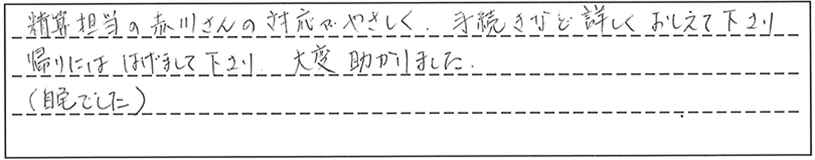 精算担当の赤川さんの対応がやさしく、手続きなど詳しくおしえて下さり
帰りには はげまして下さり、大変助かりました。
(自宅でした)